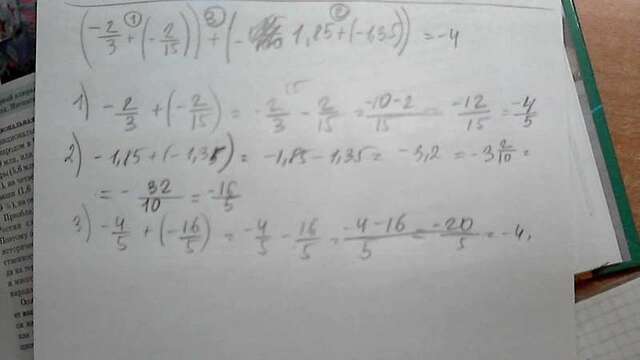 (-2/3 + (-2/15)) + (- 1,85 + (-1,35)) = -4
1) -2/3 + (-2/15) = -2/3 - 2/15 = -10-2/15 = -12/15 = -4/5
2) -1,85 + (-1,35) = -1,85 - 1,35 = -3,2 = -3 2/10 =
= - 32/10 = -16/5
3) -4/5 + (-16/5) = -4/5 - 16/5 = -4-16/5 = -20/5 = -4.